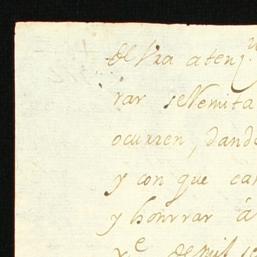 de Vra atenz.
rar seNemita
ocurren, dand
y con que ca
y honrrar á
de mil